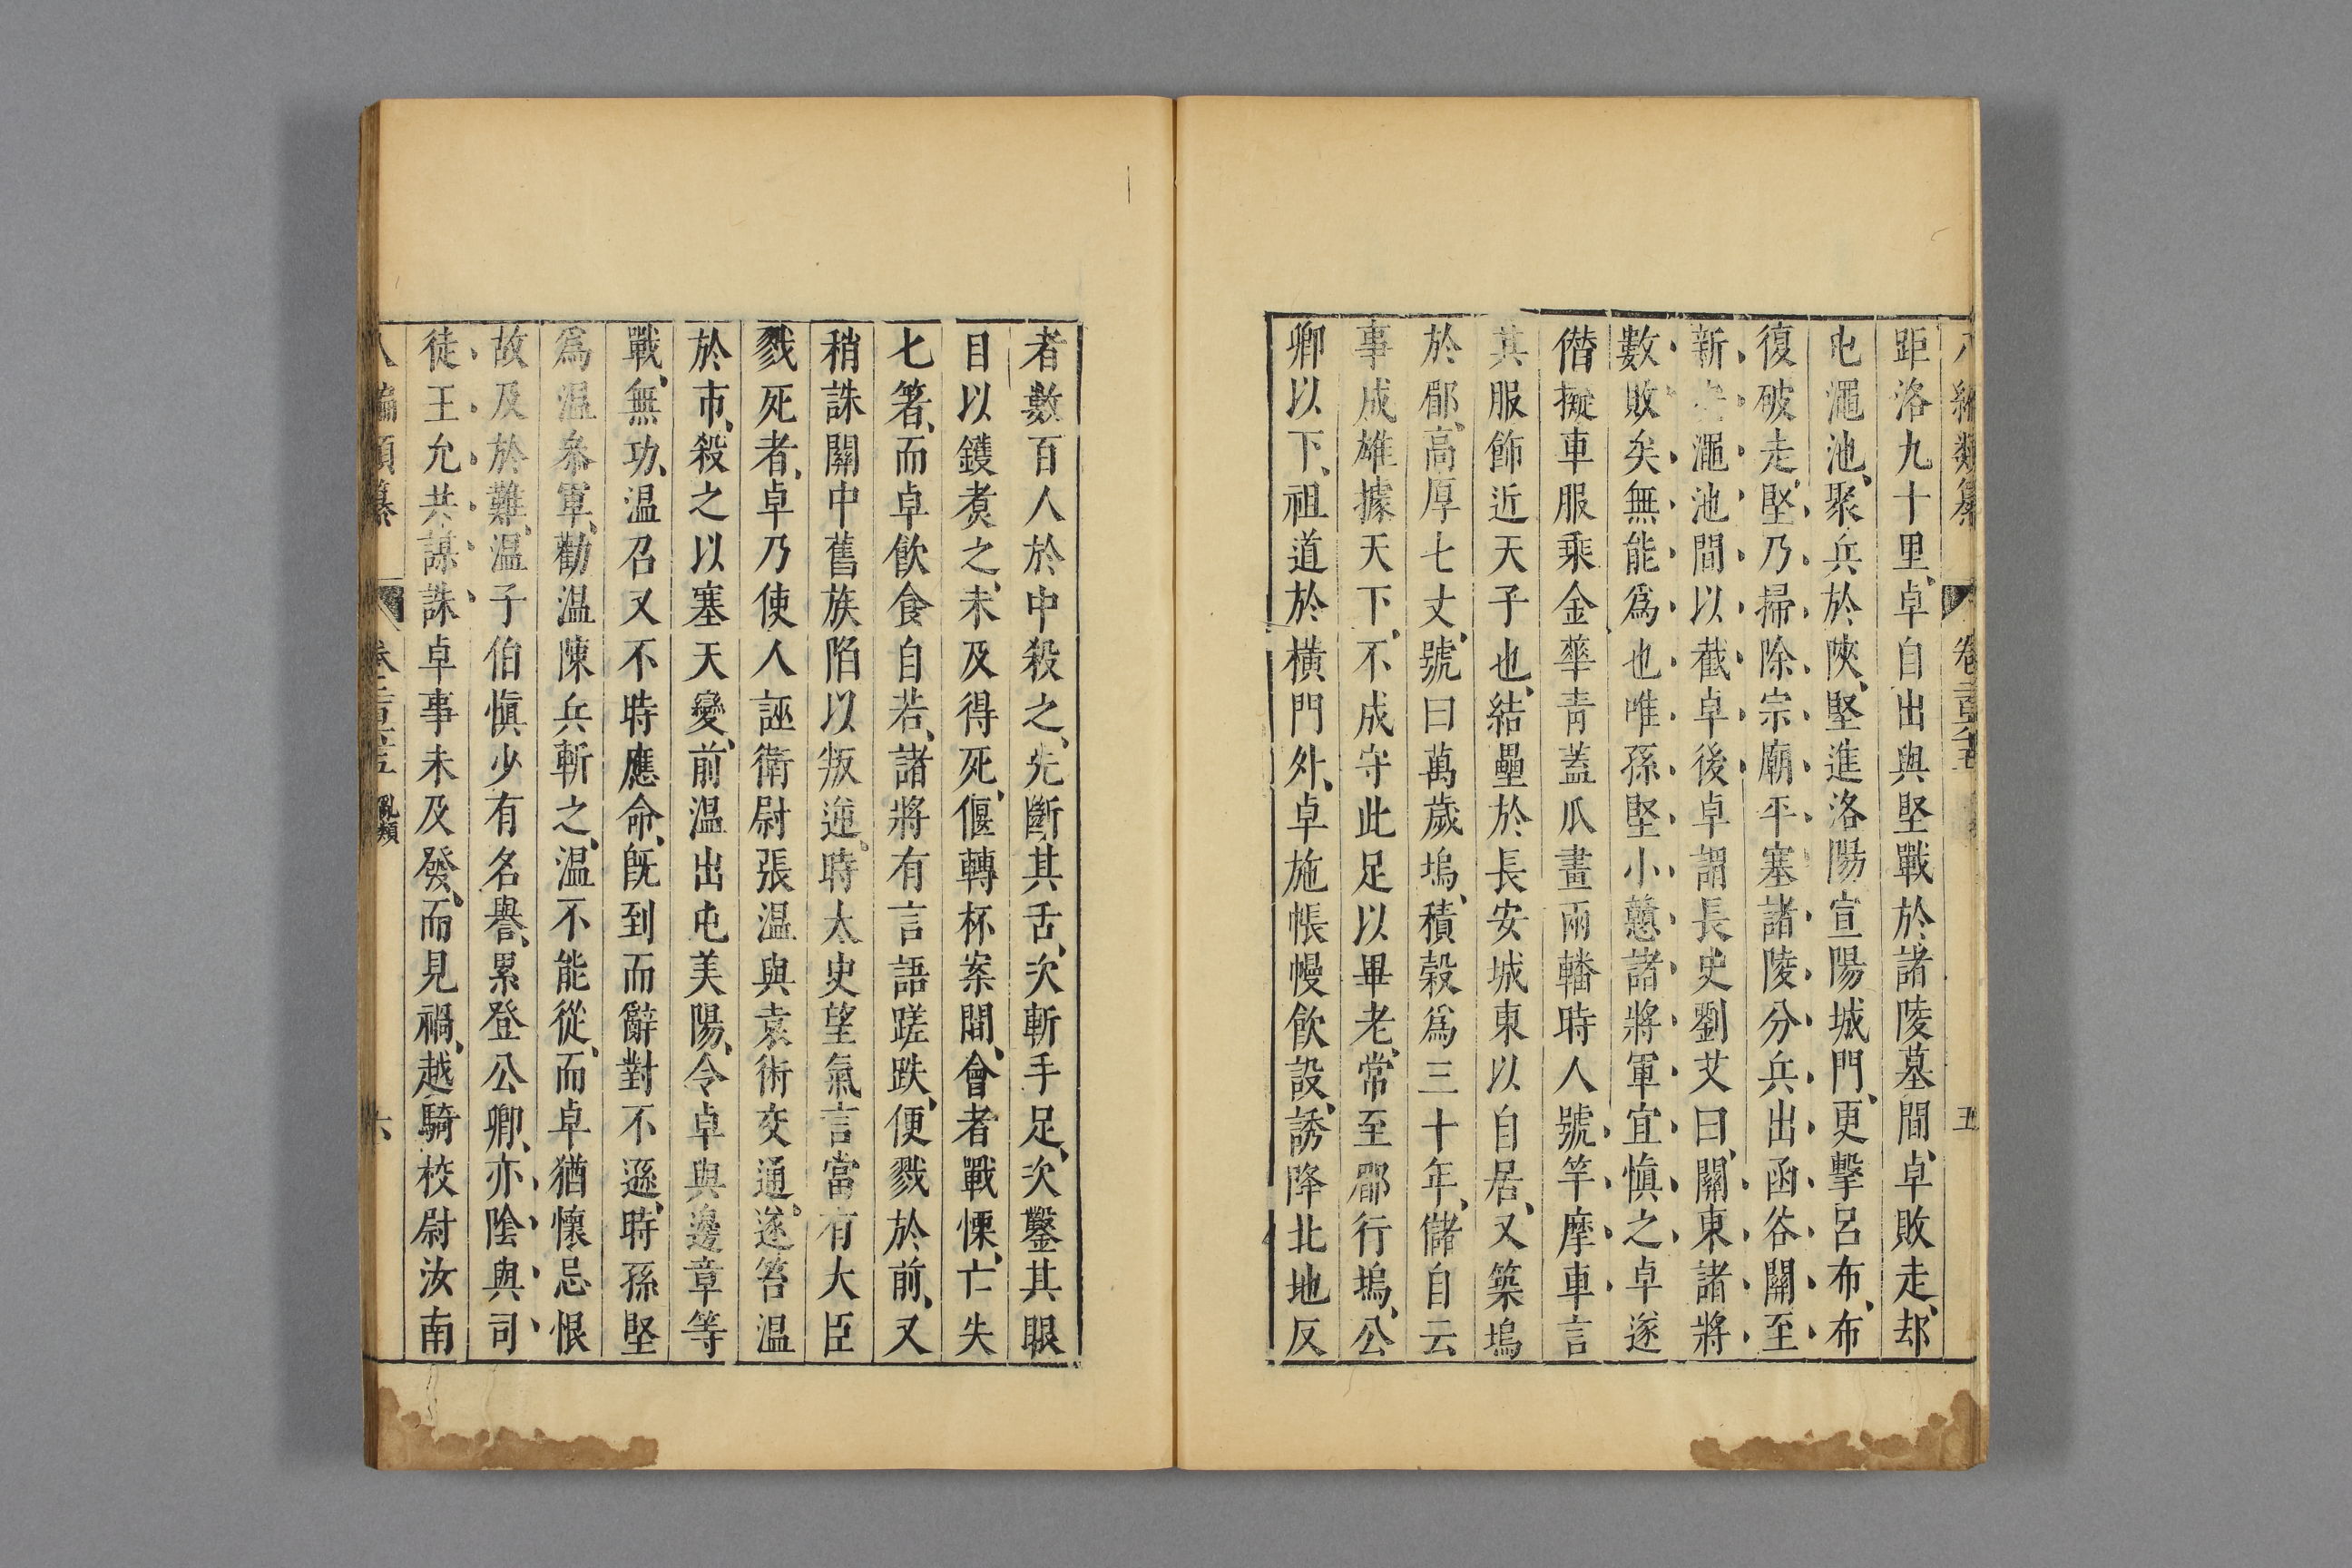 八編類纂 卷二百六十五 五
距洛九十里、卓自出與堅戰於諸陵墓間、卓敗走、却
屯澠池、聚兵於陝、堅進洛陽宣陽城門、更擊呂布、布
復破走、堅乃掃除宗廟平塞諸陵分兵出函谷關至
新安澠池間以截卓後卓謂長史劉艾曰、關東諸將
數敗矣無能爲也唯孫堅小戇諸將軍宜慎之卓遂
僭擬車服乘金華青蓋爪畫兩轓時人號竿摩車言
其服飾近天子也、結壘於長安城東以自居、又築塢
於郿、高厚七丈、號曰萬歲塢、積穀爲三十年、儲自云
事成雄據天下、不成守此足以畢老、常至郿行塢、公
卿以下、祖道於橫門外、卓施帳幔飲設、誘降北地反
者數百人於中殺之、先斷其舌、次斬手足、次鑿其眼
目以鑊煑之、未及得死、偃轉杯案間、會者戰慄、亡失
匕箸、而卓飲食自若、諸將有言語蹉跌、便戮於前、又
稍誅關中舊族陷以叛逆、時太史望氣言當有大臣
戮死者、卓乃使人誣衛尉張温與袁術交通、遂笞温
於市、殺之以塞天變、前温出屯美陽、令卓與邊章等
戰、無功、温召又不時應命、旣到而辭對不遜、時孫堅
爲温叅軍、勸温陳兵斬之、温不能從、而卓猶懷忌恨
故及於難、温子伯慎少有名譽、累登公卿、亦陰與司
徒王允共謀誅卓事未及發、而見禍、越騎校尉汝南
八編類纂 卷二百六十五 亂類 六